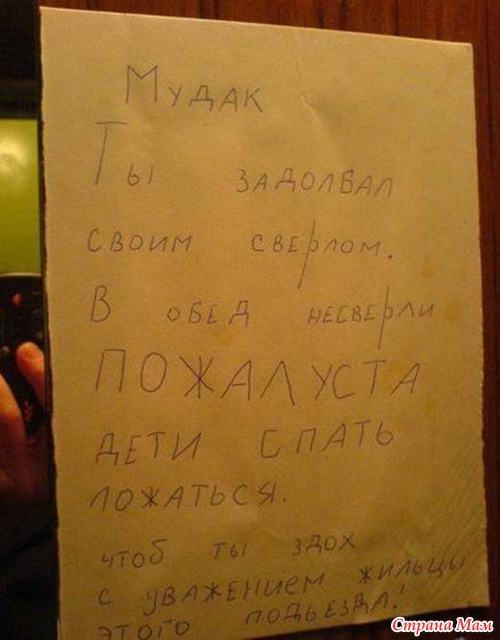 Мудак
Ты задолбал
своим сверлом.
В обед несверли
ПОЖАЛУСТА
дети спать
ложаться.
чтоб ты здох
с уважением жильцы
этого подьезда!
Страна Мам